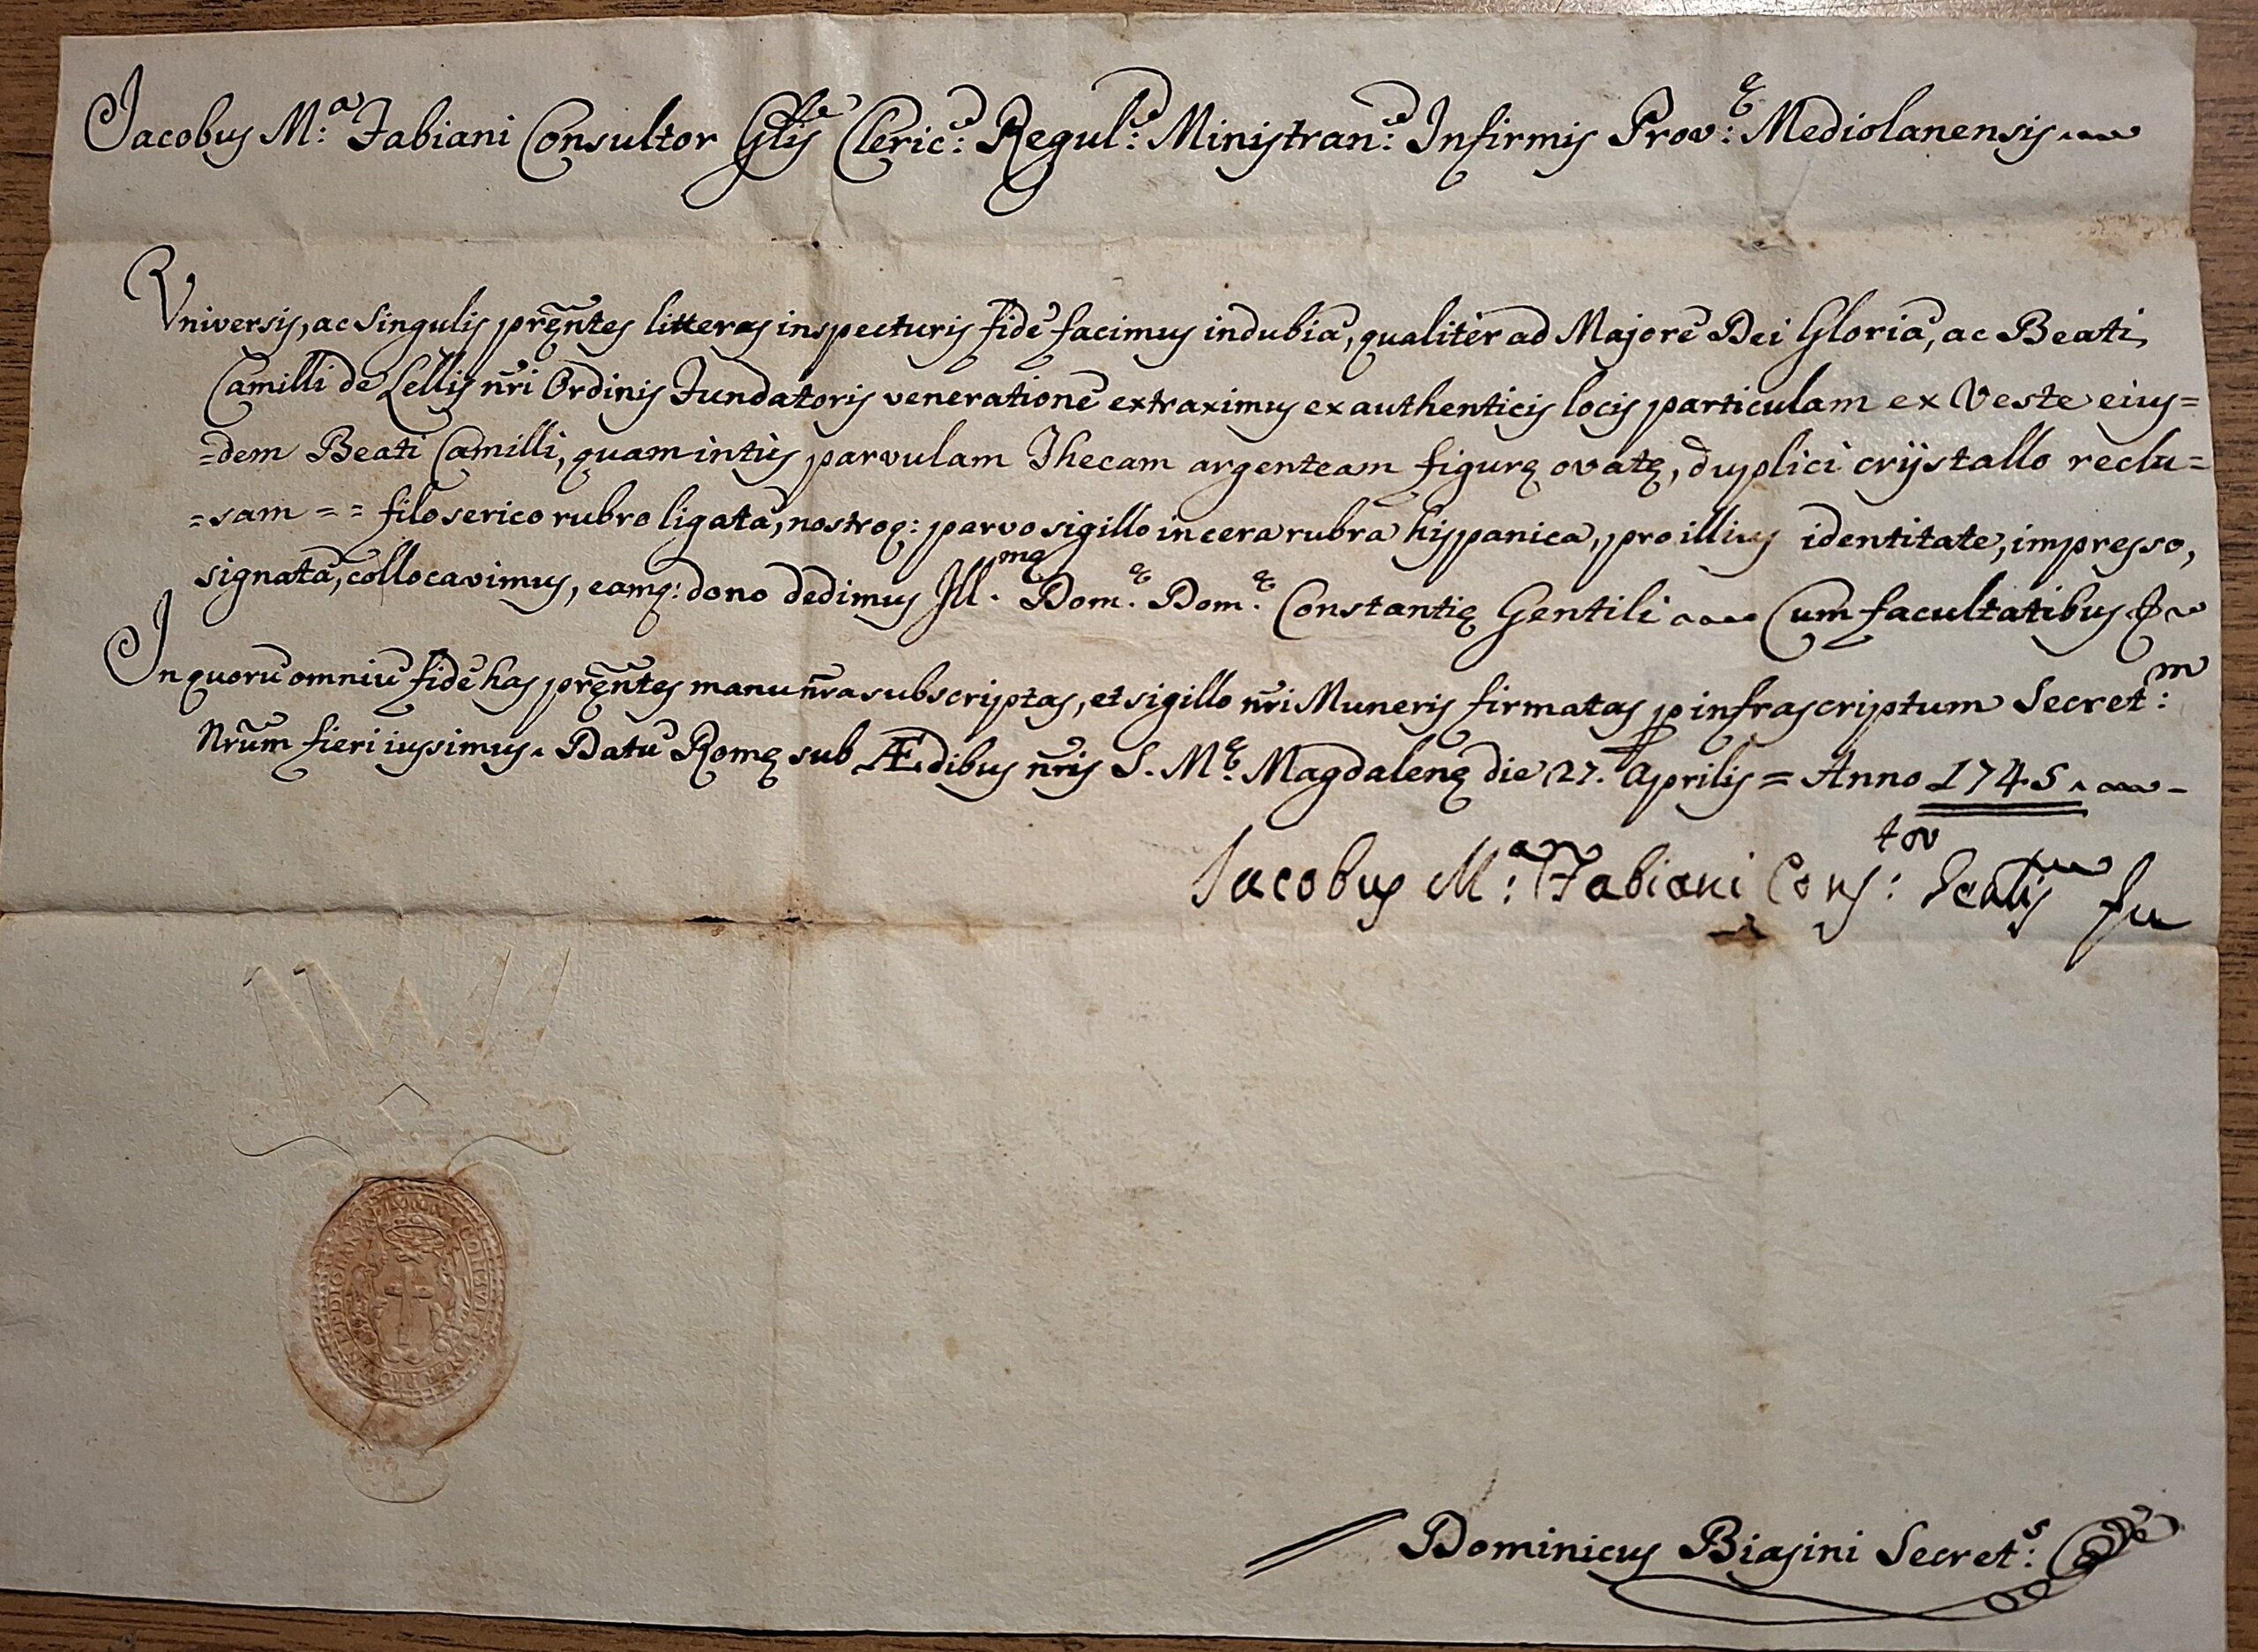 Jacobus M:ᵃ Fabiani Consultor Gñlis Cleric: Regul: Ministran: Infirmis Prov:ę Mediolanensis
Vniversis, ac Singulis pręñtes litteras inspecturis fidē facimus indubiā, qualitèr ad Majorē Dei Gloriā, ac Beati
Camilli de Lellis nr̃i Ordinis Fundatoris venerationē extraximus ex authenticis locis particulam ex Veste eius=
=dem Beati Camilli, quam intùs parvulam Thecam argenteam figurę ovatę, duplici crijstallo reclu=
=sam = = filo serico rubro ligatā, nostroq: parvo sigillo in cera rubra hispanica, pro illius identitate, impresso,
signatā, collocavimus, eamq: dono dedimus Jll.ᵐᵃ Dom.ę Dom.ę Constantię Gentili Cum facultatibus &
In quorū omniū fidē has pręñtes manu ñra subscriptas, et sigillo nr̃i Muneris firmatas p infrascriptum Secret:ᵐ
Nr̃um fieri iussimus. Datū Romę sub Ædibus nr̃is S. M:ę Magdalenę die 27. Aprilis = Anno 1745.
Jacobus M:ᵃ Fabiani Cons:ᵗᵒʳ
Dominicus Biasini Secret:ˢ